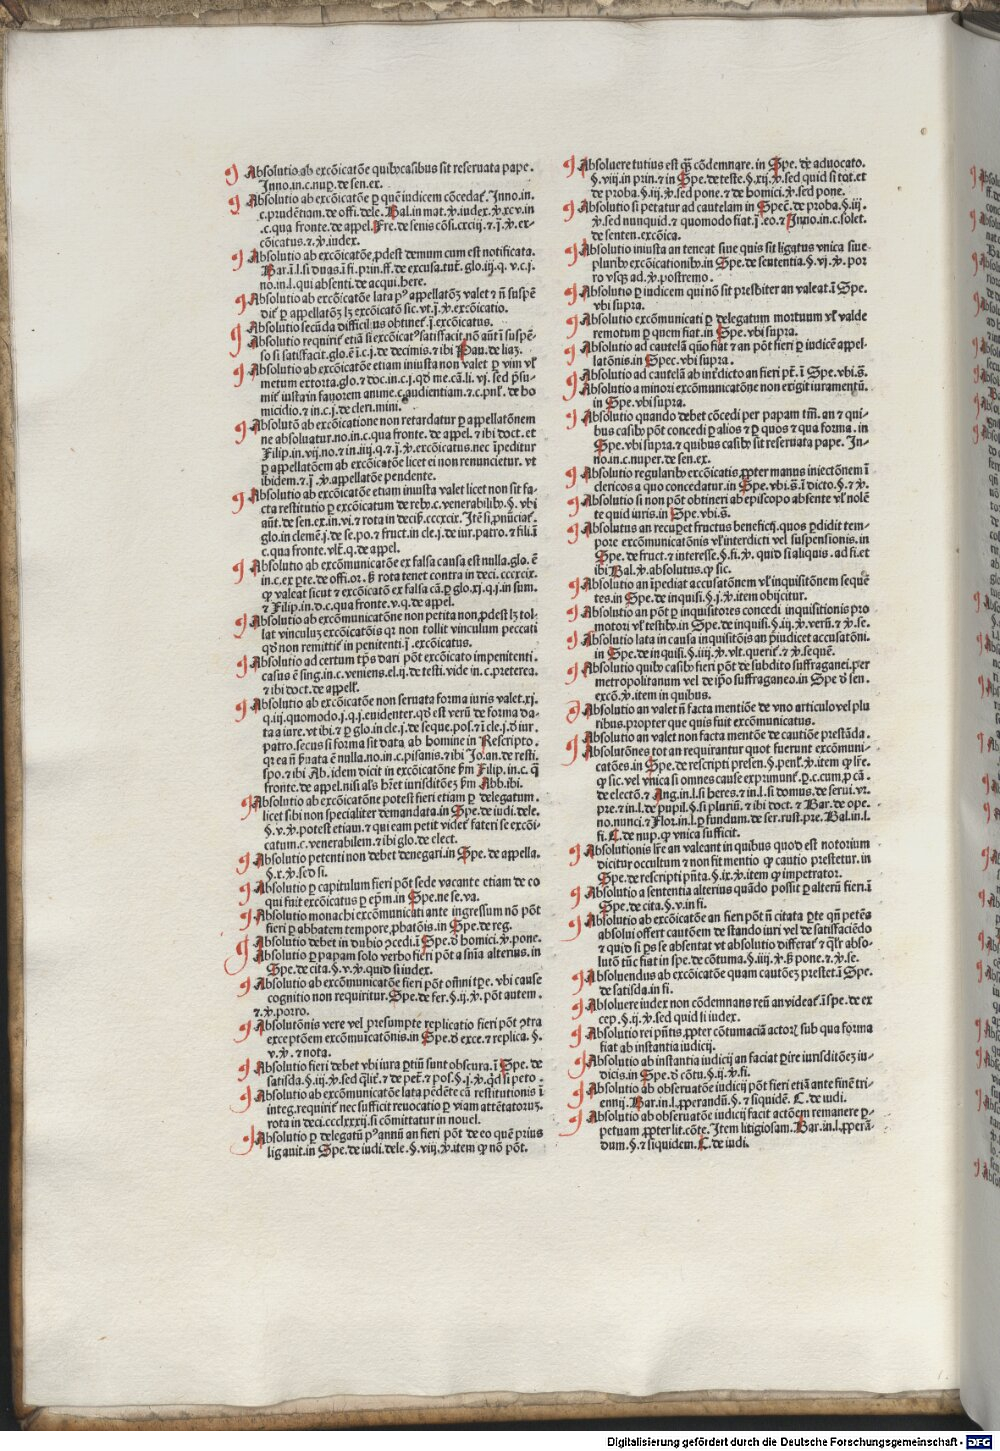 Absolutio ab excōicatōe quibꝰcasibus sit reseruata pape.
Inno.in.c.nuꝑ.de sen.ex.
Absolutio ab excōicatōe ꝑ quē iudicem cōcedat᷑. Inno.in.
c.prudētiam.de offi.dele. Bal.in mat.ꝟ.iudex.ꝟ.xcv.in
.c.qua fronte.de appel. Fre.de senis cōsi.cxciij.⁊.j.ꝟ.ex-
cōicatus.⁊.ꝟ.iudex.
Absolutio ab excōicatōe,ꝓdest demum cum est notificata.
Bar.ī.l.si duas.ī fi.prin.ff.de excusa.tut̄. glo.iij.q. v.c.j.
no.in.l.qui absenti.de acqui.here.
Absolutio ab excōicatōe lata pꝰ appellatōꝫ valet ⁊ n̄ suspē
dit᷑ ꝑ appellatōꝫ lꝫ excōicatō sic.vt.j.ꝟ.excōicatio.
Absolutio secūda difficilius obtinet᷑.j.excōicatus.
Absolutio requirit᷑ etiā si excōicatꝰsatisfacit.nō aūt ī suspē-
so si satisfacit.glo.ē ī.c.j.de decimis.⁊ ibi Pau. de liaꝫ.
Absolutio ab excōicatōe etiam iniusta non valet ꝑ vim vl̓
metum extorta.glo.⁊ doc.in.c.j.qd̓ me.cā.li. vj. sed p̄su-
mit᷑ iusta in fauorem anime.c.audientiam.⁊.c.pnl̓. de ho
micidio.⁊ in.c.j.de cleri.mini.
Absolutō ab excōicatione non retardatur ꝑ appellatōnem
ne absoluatur.no.in.c.qua fronte. de appel. ⁊ ibi doct.et
Filip.in.vij.no.⁊ in.iiij.q.⁊.j.ꝟ.excōicatus.nec īpeditur
ꝑ appellatōem ab excōicatōe licet ei non renuncietur. vt
ibidem.⁊.j.ꝟ.appellatōe pendente.
Absolutio ab excōicatōe etiam iniusta valet licet non sit fa-
cta restitutio ꝑ excōicatum de rebꝰ.c.venerabilibꝰ.§. vbi
aūt.de sen.ex.in.vi.⁊ rota in decis̄.cccxcix. Itē si ꝓnūciat᷑.
glo.in clemē.j.de se.po.⁊ fruct.in cle.j.de iur.patro.⁊ fili.ī
c.qua fronte.vlt̄.q.de appel.
Absolutio ab excōmunicatōe ex falsa causa est nulla.glo.ē
in.c.ex ꝑte.de offi.or. ß rota tenet contra in deci. cccxcix.
ꝙ valeat sicut ⁊ excōicatō ex falsa cā.ꝑ glo.xj.q.j.in sum.
⁊ Filip.in.d.c.qua fronte.v.q.de appel.
Absolutio ab excōmunicatōne non petita non,ꝓdest lꝫ tol-
lat vinculuꝫ excōicatōis qꝛ non tollit vinculum peccati
qd̓ non remittit᷑ in penitenti.j.excōicatus.
Absolutio ad certum tp̄s dari pōt excōicato impenitenti.
casus ē sing.in.c.veniens.el.ij.de testi.vide in.c.preterea.
⁊ ibi doct.de appell̓.
Absolutio ab excōicatōe non seruata forma iuris valet.xj.
q.iij.quomodo.j.q.j.euidenter.qd̓ est verū de forma da-
ta a iure.vt ibi.⁊ ꝑ glo.in cle.j.de seque.pos.⁊ ī cle.j.ď iur.
patro.secus si forma sit data ab homine in Rescripto.
qꝛ ea n̄ s̄uata ē nulla.no.in.c.pisanis.⁊ ibi Jo.an.de resti.
spo.⁊ ibi Ab.idem dicit in excōicatōne s̄m Filip.in.c.q̄
fronte.de appel.nisi als hr̄et iurisditōeꝫ s̄m Abb.ibi.
Absolutio ab excōicatōne potest fieri etiam ꝑ delegatum.
licet sibi non specialiter demandata.in Spe.de iudi.dele.
§.v.ꝟ.potest etiam.⁊ qui eam petit videt᷑ fateri se excōi-
catum.c.venerabilem.⁊ ibi glo.de elect.
Absolutio petenti non debet denegari.in Spe.de appella.
§.x.ꝟ.sed si.
Absolutio ꝑ capitulum fieri pōt sede vacante etiam de eo
qui fuit excōicatus ꝑ ep̄m.in Spe.ne se.va.
Absolutio monachi excōmunicati ante ingressum nō pōt
fieri ꝑ abbatem tempore,ꝓbatōis.in Spe.de reg.
Absolutio debet in dubio ꝯcedi.ī Spe.ď homici.ꝟ.pone.
Absolutio ꝑ papam solo verbo fieri pōt a sn̄ia alterius.in
Spe.de cita.§.v.ꝟ.quid si iudex.
Absolutio ab excōmunicatōe fieri pōt om̄i tꝑe. vbi cause
cognitio non requiritur. Spe.de fer.§.ij.ꝟ.pōt autem.
⁊.ꝟ.porro.
Absolutōnis vere vel presumpte replicatio fieri pōt ꝯtra
exceptōem excōmūicatōnis.in Spe.ď exce.⁊ replica. §.
v.ꝟ.⁊ nota.
Absolutio fieri debet vbi iura ꝑtiū sunt obscura.ī Spe. de
satisda.§.iij.ꝟ.sed qlit̓.⁊ de pet̄.⁊ pos.§.j.ꝟ.qd̓ si peto.
Absolutio ab excōmunicatōe lata pēdēte cā restitutionis ī
integ.requirit᷑ nec sufficit reuocatio ꝑ viam attētatoruꝫ.
rota in deci.ccclxxxij.si cōmittatur in nouel.
Absolutio ꝑ delegatū pꝰ annū an fieri pōt de eo quē prius
ligauit.in Spe.de iudi.dele.§.viij.ꝟ.item ꝙ nō pōt.
Absoluere tutius est q̄ꝫ cōdemnare. in Spe. de aduocato.
§.viij.in prin.⁊ in Spe.de teste.§.xij.ꝟ.sed quid si tot.et
de proba.§.iij.ꝟ.sed pone.⁊ de homici.ꝟ.sed pone.
Absolutio si petatur ad cautelam in Spec̄.de proba.§.iij.
ꝟ.sed nunquid.⁊ quomodo fiat.j.eo.⁊ Inno.in.c.solet.
de senten.excōica.
Absolutio iniusta an teneat siue quis sit ligatus vnica siue
pluribꝰ excōicationibꝰ.in Spe.de sententia.§.vj.ꝟ. por
ro vsqꝫ ad.ꝟ.postremo.
Absolutio ꝑ iudicem qui nō sit presbiter an valeat.ī Spe.
vbi supra.
Absolutio excōmunicati ꝑ delegatum mortuum vl̓ valde
remotum ꝑ quem fiat.in Spe.vbi supra.
Absolutio ad cautelā quō fiat ⁊ an pōt fieri ꝑ iudicē appel-
latōnis.in Spec.vbi supra.
Absolutio ad cautelā ab int̓dicto an fieri pt̄.ī Spe.vbi.s̄.
Absolutio a minori excōmunicatōne non exigit iuramentū.
in Spe.vbi supra.
Absolutio quando debet cōcedi per papam tm̄. an ⁊ qui-
bus casibꝰ pōt concedi ꝑ alios ⁊ ꝑ quos ⁊ qua forma. in
Spe.vbi supra.⁊ quibus casibꝰ sit reseruata pape. In-
no.in.c.nuper.de sen.ex.
Absolutio regularibꝰ excōicatis,ꝓpter manus iniectōnem ī
clericos a quo concedatur.in Spe.vbi.s̄.ī dicto.§.⁊.ꝟ.
Absolutio si non pōt obtineri ab episcopo absente vl̓ nolē
te quid iuris.in Spe.vbi.s̄.
Absolutus an recuꝑet fructus beneficij.quos ꝑdidit tem-
pore excōmunicatōnis vl̓ interdicti vel suspensionis.in
Spe.de fruct.⁊ interesse.§.fi.ꝟ. quid si aliquis. ad fi.et
ibi Bal.ꝟ.absolutus.ꝙ sic.
Absolutio an īpediat accusatōnem vl̓ inquisitōnem sequē
tes.in Spe.de inquisi.§.j.ꝟ.item obijcitur.
Absolutio an pōt ꝑ inquisitores concedi inquisitionis pro
motori vl̓ testibꝰ.in Spe.de inquisi.§.iij.ꝟ.versi.⁊ ꝟ.se.
Absolutio lata in causa inquisitōis an p̄iudicet accusatōni.
in Spe.de inquisi.§.iiij.ꝟ.vlt.querit᷑.⁊ ꝟ.sequē.
Absolutio quibꝰ casibꝰ fieri pōt de subdito suffraganei.per
metropolitanum vel de ip̄o suffraganeo.in Spe ď sen.
excō.ꝟ.item in quibus.
Absolutio an valet n̄ facta mentiōe de vno articulo vel plu
ribus.propter que quis fuit excōmunicatus.
Absolutio an valet non facta mentōe de cautiōe prestāda.
Absolutōnes tot an requirantur quot fuerunt excōmuni-
catōes.in Spe.de rescripti presen.§.penl̓.ꝟ.item ꝙ lr̄e.
ꝙ sic.vel vnica si omnes cause exprimunt᷑.ꝑ.c.cum ꝓ cā-
de electō.⁊ Ang.in.l.si heres.⁊ in.l.si domus.de serui.vr.
pre.⁊ in.l.de pupil.§.si pluriū.⁊ ibi doct. ⁊ Bar. de ope.
no.nunci.⁊ Flor.in.l.ꝑ fundum.de ser.rust.pre.Bal.in.l.
fi.C.de nup.ꝙ vnica sufficit.
Absolutionis lr̄e an valeant in quibus quod est notorium
dicitur occultum ⁊ non fit mentio ꝙ cautio prestetur. in
Spe.de rescripti pn̄ta.§.ix.ꝟ.item ꝙ imperator.
Absolutio a sententia alterius quādo possit ꝑ alterū fieri.ī
Spe.de cita.§.v.in fi.
Absolutio ab excōicatōe an fieri pōt n̄ citata ꝑte qn̄ petēs
absolui offert cautōem de stando iuri vel de satisfaciēdo
⁊ quid si ꝑs se absentat vt absolutio differat᷑ ⁊ qlr̄ abso-
lutō tūc fiat in spe.de cōtuma.§.iiij.ꝟ.ß pone.⁊.ꝟ.se.
Absoluendus ab excōicatōe quam cautōeꝫ prestet.ī Spe.
de satisda.in fi.
Absoluere iudex non cōdemnans reū an videat᷑.ī spe.de ex
cep.§.ij.ꝟ.sed quid si iudex.
Absolutio rei pn̄tis.ꝓpter cōtumaciā actorꝭ sub qua forma
fiat ab instantia iudicij.
Absolutio ab instantia iudicij an faciat ꝑire iurisditōeꝫ iu-
dicis.in Spe.ď cōtu.§.ij.ꝟ.fi.
Absolutio ab obseruatōe iudicij pōt fieri etiā ante finē tri-
ennij. Bar.in.l.ꝓperandū.§.⁊ siquidē. C. de iudi.
Absolutio ab obseruatōe iudicij facit actōem remanere ꝑ-
petuam ꝓpter lit.cōte. Item litigiosam. Bar.in.l.ꝓperā-
dum.§.⁊ siquidem.C.de iudi.
Digitalisierung gefördert durch die Deutsche Forschungsgemeinschaft - DFG